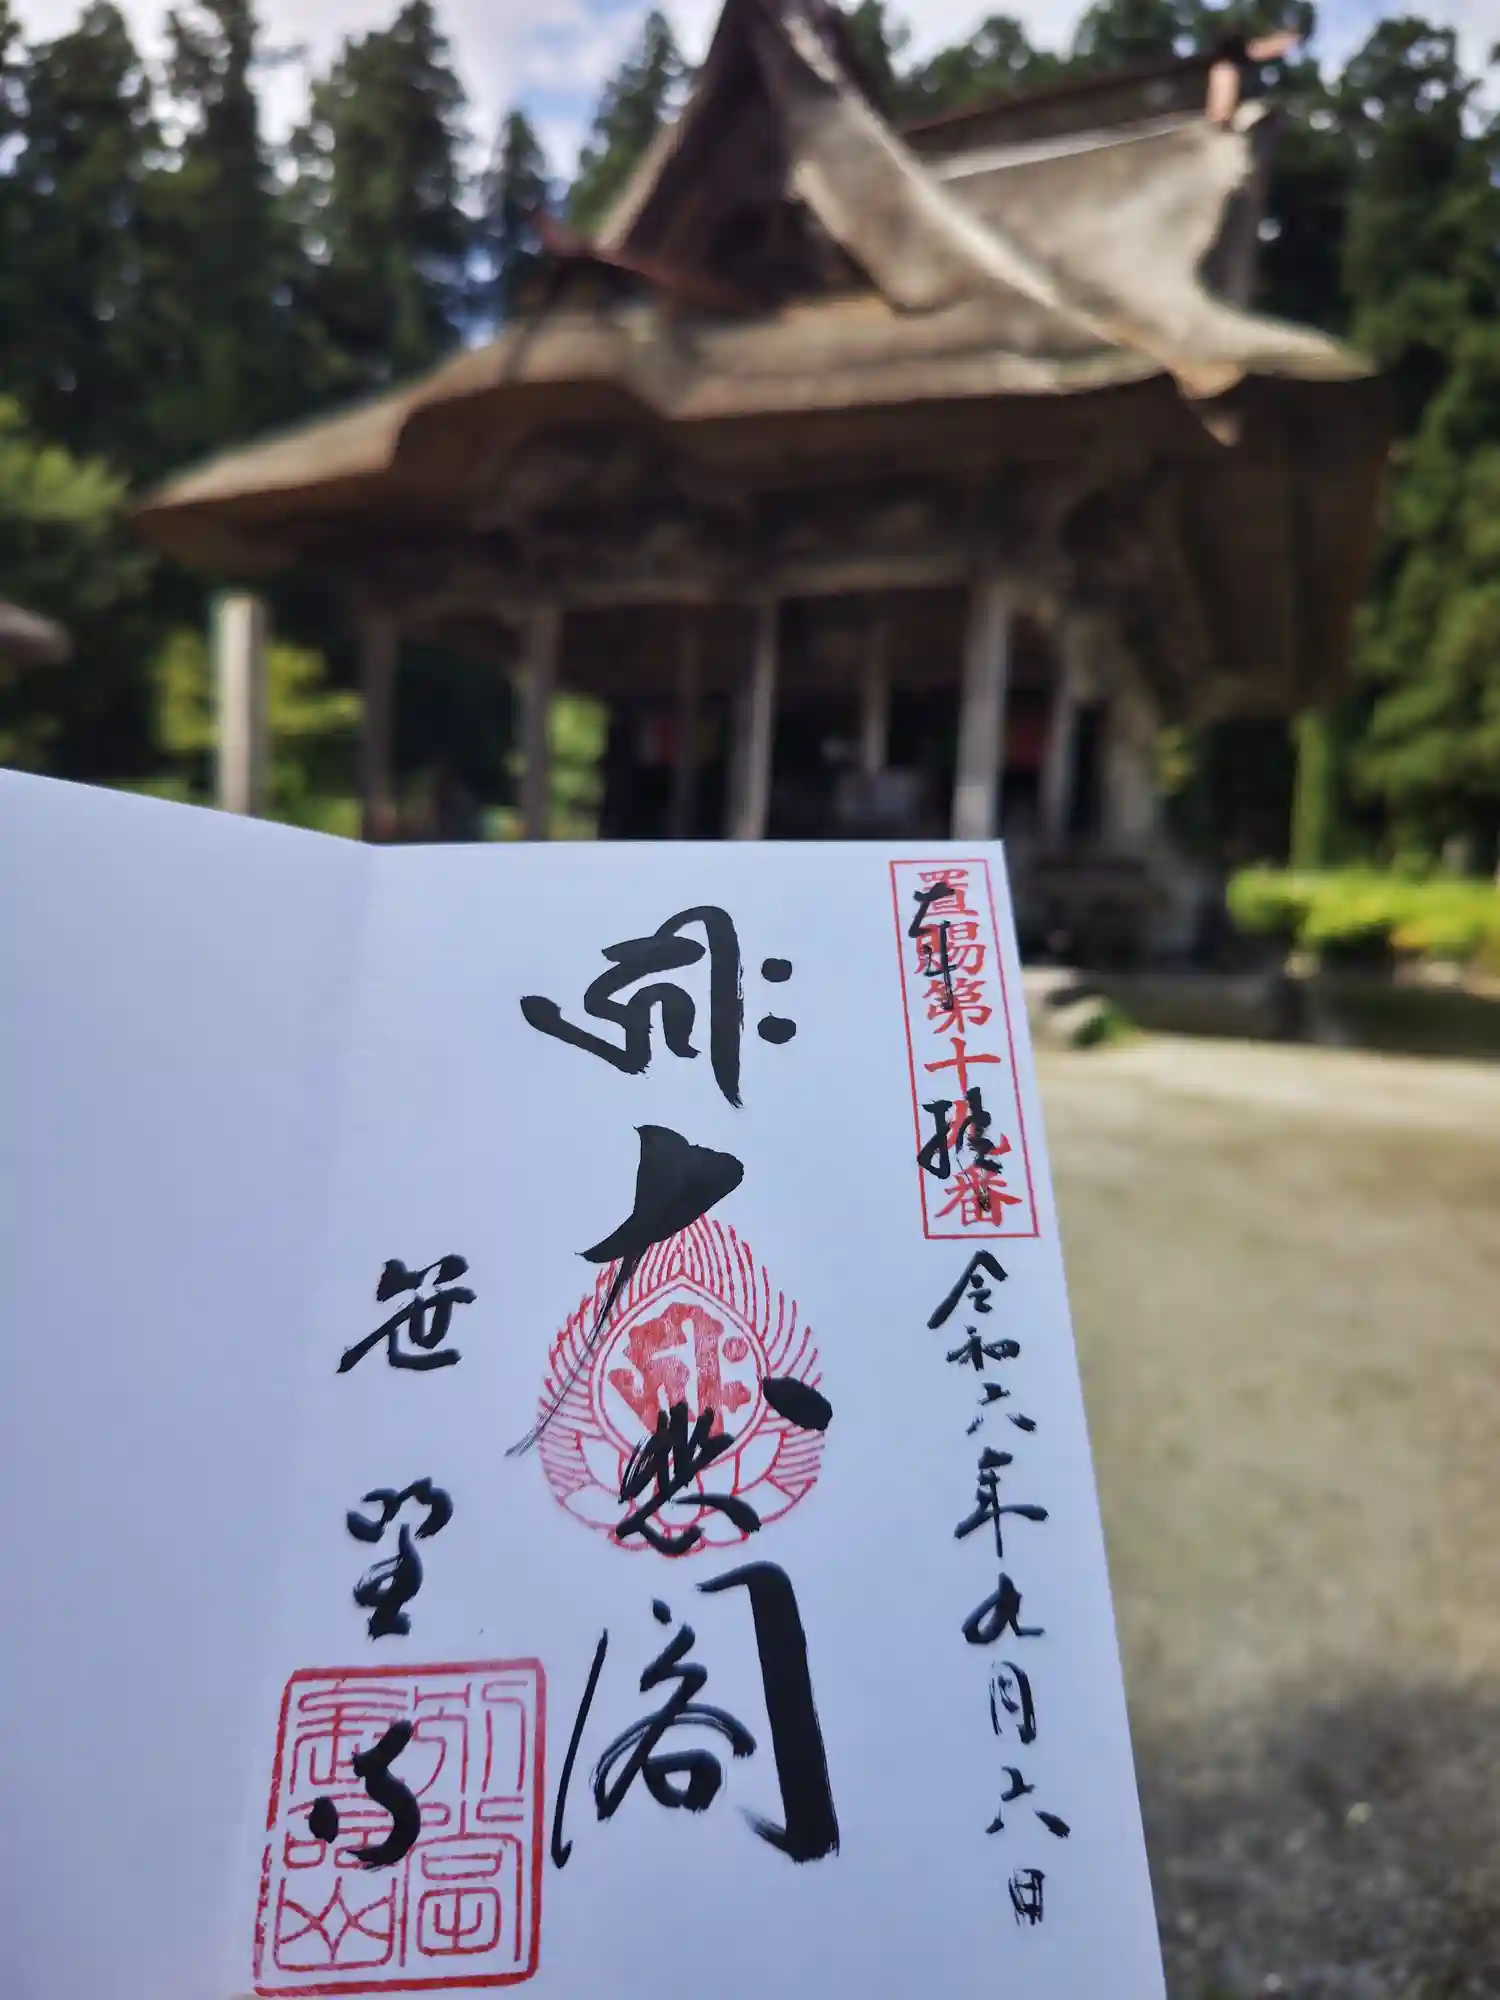 置賜第十九番
奉拝
令和六年九月六日
大悲閣
笹野寺